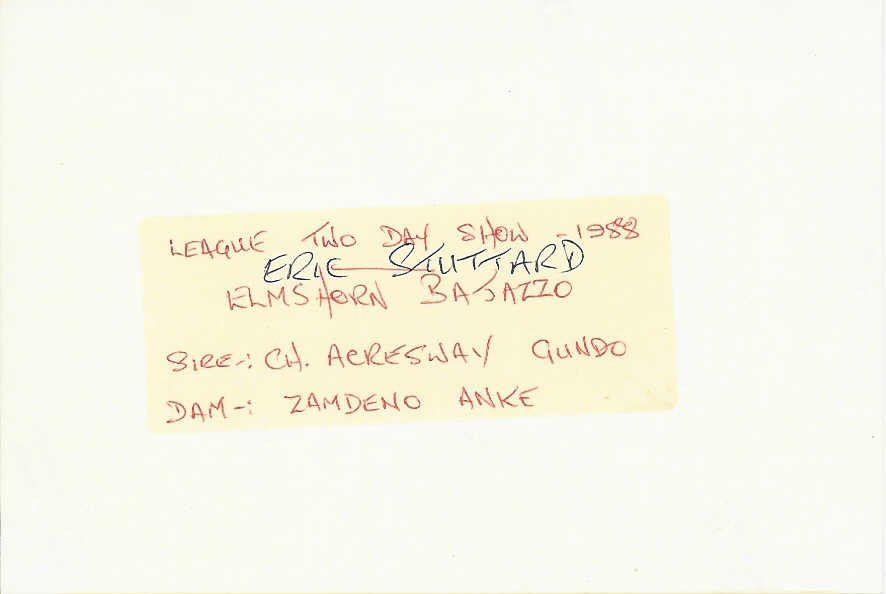 LEAGUE TWO DAY SHOW - 1988
ERIC STUTTARD
ELMSHORN BAJAZZO
SIRE-: CH. ACRESWAY GUNDO
DAM-: ZAMDENO ANKE